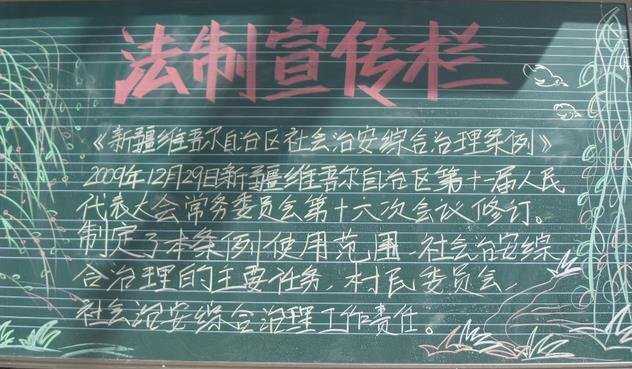 法制宣传栏
《新疆维吾尔自治区社会治安综合治理条例》
2009年12月29日新疆维吾尔自治区第十一届人民
代表大会常务委员会第十六次会议修订。
制定了本条例使用范围、社会治安综
合治理的主要任务、村民委员会、
社会治安综合治理工作责任。